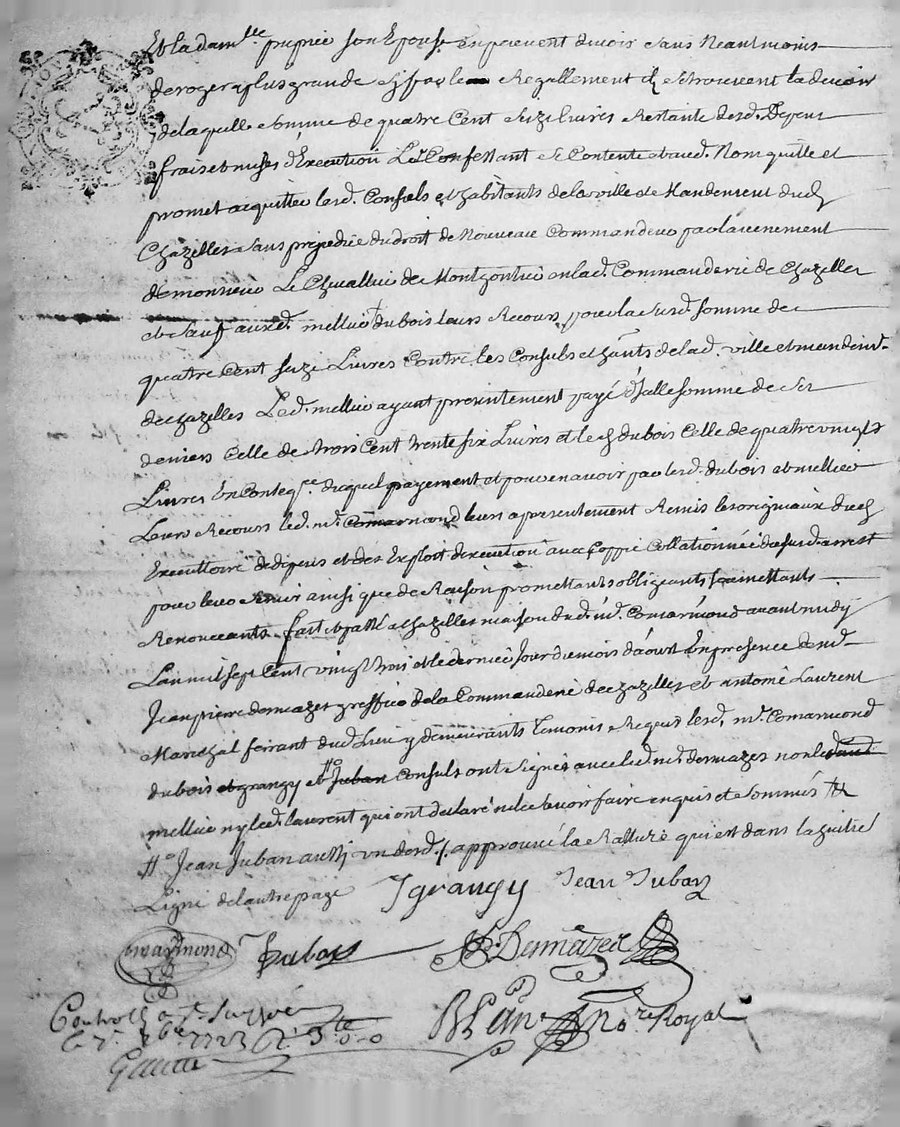 Et la dam^lle pupnée son Epouse dubois Sans Neantmoins
deroger plus grande Regallement Se trouvent
de laquelle somme de quatre Cent Seize livres Restante desd. Depens
frais et mises d'Execution Led. Confessant Se Contente et aud. Nom quitte et
promet acquitter lesd. Consuls et habitants de la ville et Mandement dud.
Chazelles Sans prejudice du droit de Nouveau Commandeur par l'avenement
de monsieur Le Chevallier de Montgontier en lad. Commanderie de Chazelles
et Sauf auxd. mellier dubois leurs Recours pour la Susd. Somme de
quatre Cent Seize Livres Contre les Consuls et h̃ants de lad. ville et mandem^t.
de Chazelles Led. mellier ayant presentement payé d'Jcelle Somme de Ses
deniers Celle de trois Cent trente six Livres et led. dubois Celle de quatre vingts
Livres En Conseq^ce. duquel payement et pour en avoir par lesd. dubois et mellier
Leurs Recours led. m^e. Comarmond leur a presentement Remis les originaux dud.
Executtoire de depens et des Exploit d'execution avec Coppie Collationnée du susd. arrest
pour leur Servir ainsi que de Raison promettants obligeants Soumettants
Renonceants fait et passé a Chazelles maison dud. m^e. Comarmond avant midy
L'an mil sept Cent vingt trois et le dernier Jour du mois d'aoust En presence de m^e.
Jean pierre demazes greffier de la Commanderie de Chazelles et antoine Laurent
Marechal ferrant dud. Lieu y demeurants temoins Requis lesd. m^e. Comarmond
dubois et grangy et Juban Consuls ont Signés avec led. m^e. demazes non led.
mellier ny led. laurent qui ont declaré ne le Scavoir faire enquis et Sommés
Jean Juban aussi un desd. approuvé la Rature qui est dans la huitie^e
Ligne de l'autre page J grangy Jean Juban
Comarmond Dubois Demazes
Controllé a St.
le 7^e. 7bre. 1723
No^re Royal